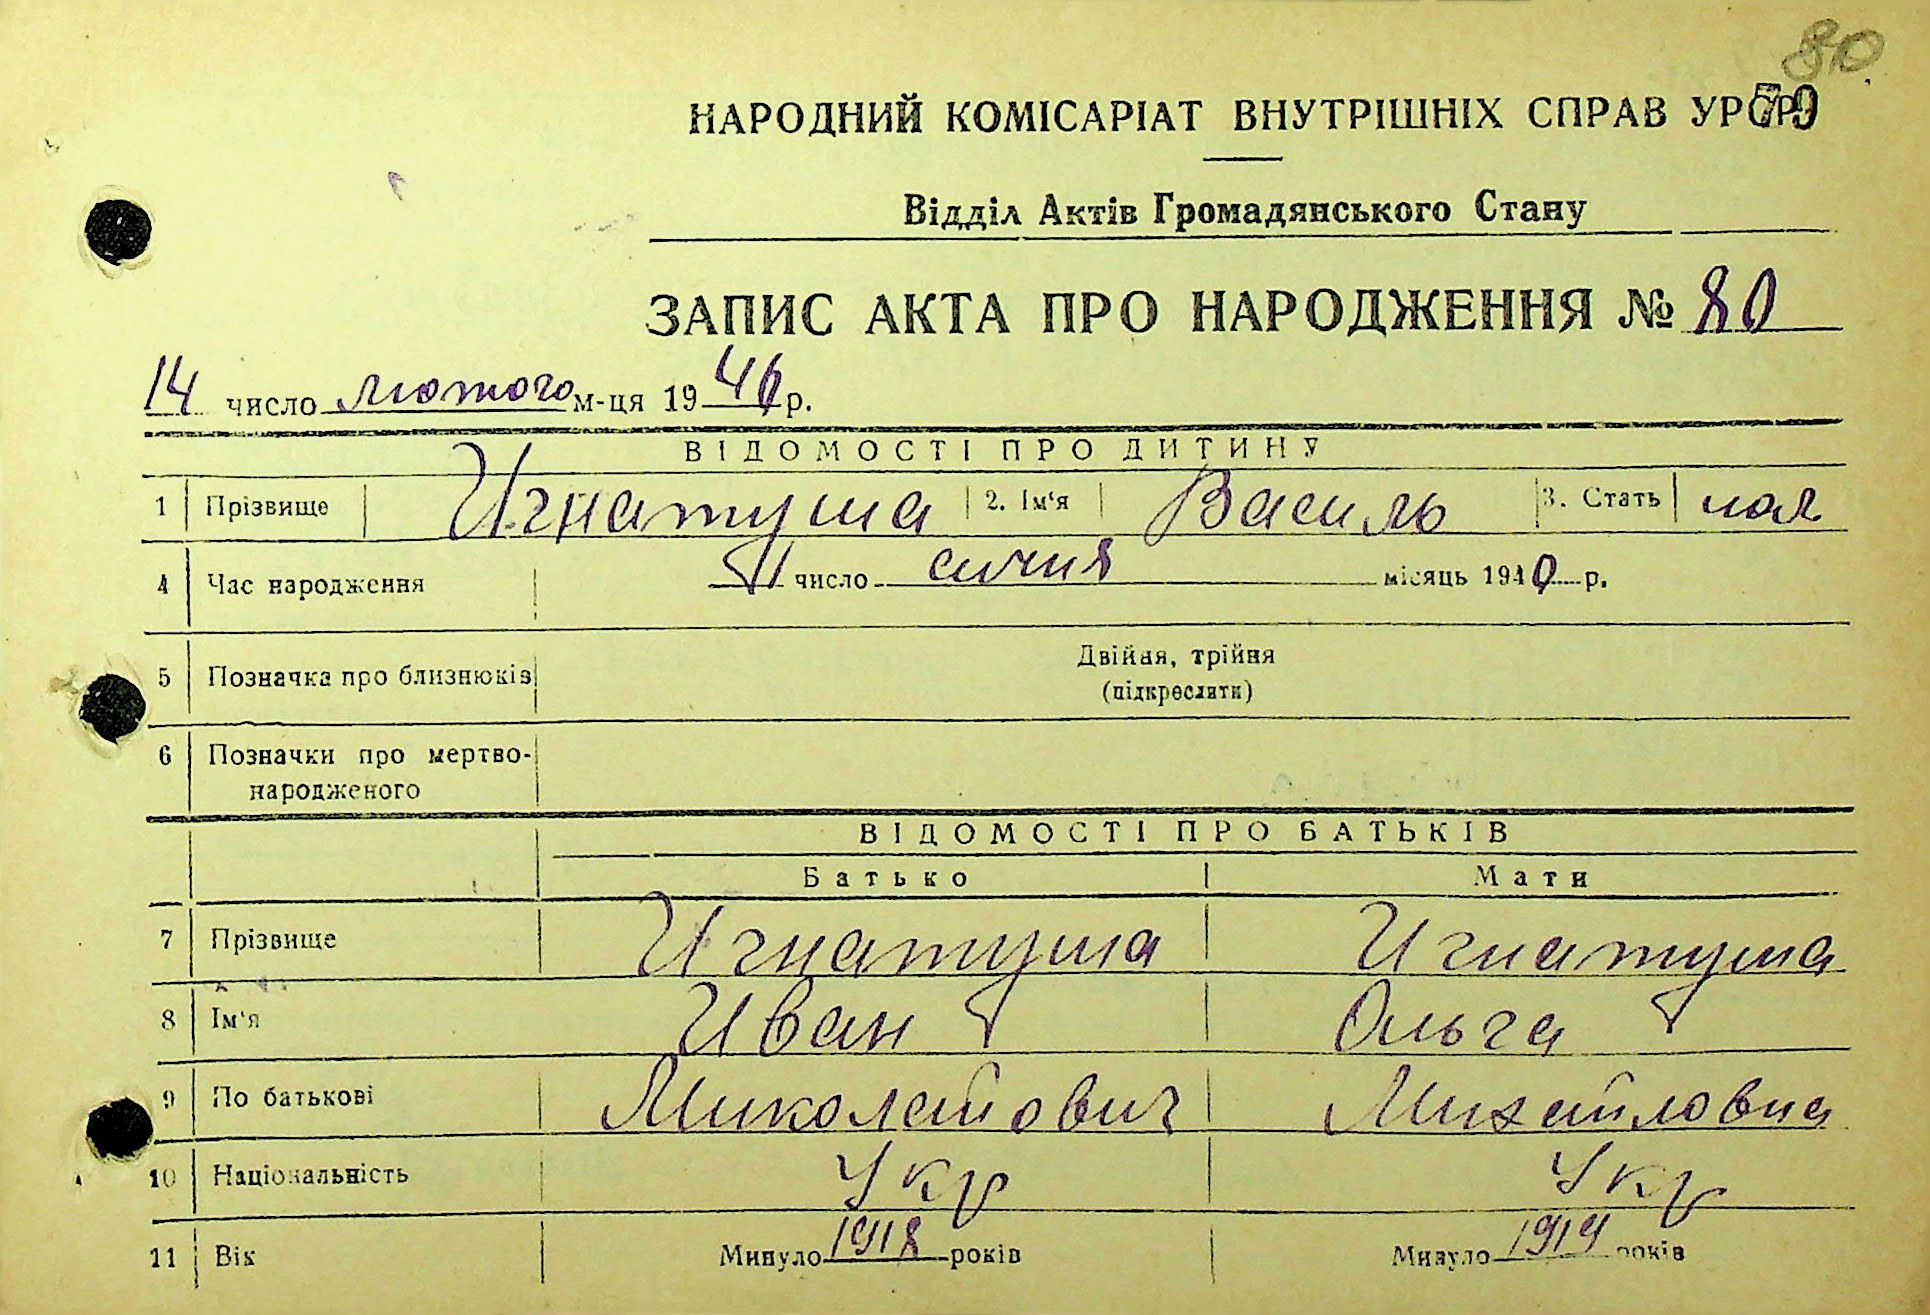 80
НАРОДНИЙ КОМІСАРІАТ ВНУТРІШНІХ СПРАВ УРСР 79
Відділ Актів Громадянського Стану
ЗАПИС АКТА ПРО НАРОДЖЕННЯ № 80
14 число лютого м-ця 1946 р.
ВІДОМОСТІ ПРО ДИТИНУ
1 Прізвище Игнатуша 2. Ім'я Василь 3. Стать чол
4 Час народження 11 число січня місяць 1940 р.
5 Позначка про близнюків Двійня, трійня
(підкреслити)
6 Позначки про мертво-
народженого
ВІДОМОСТІ ПРО БАТЬКІВ
Батько Мати
7 Прізвище Игнатуша Игнатуша
8 Ім'я Иван Ольга
9 По батькові Миколайович Михайловна
10 Національність Укр Укр
11 Вік Минуло 1918 років Минуло 1919 років